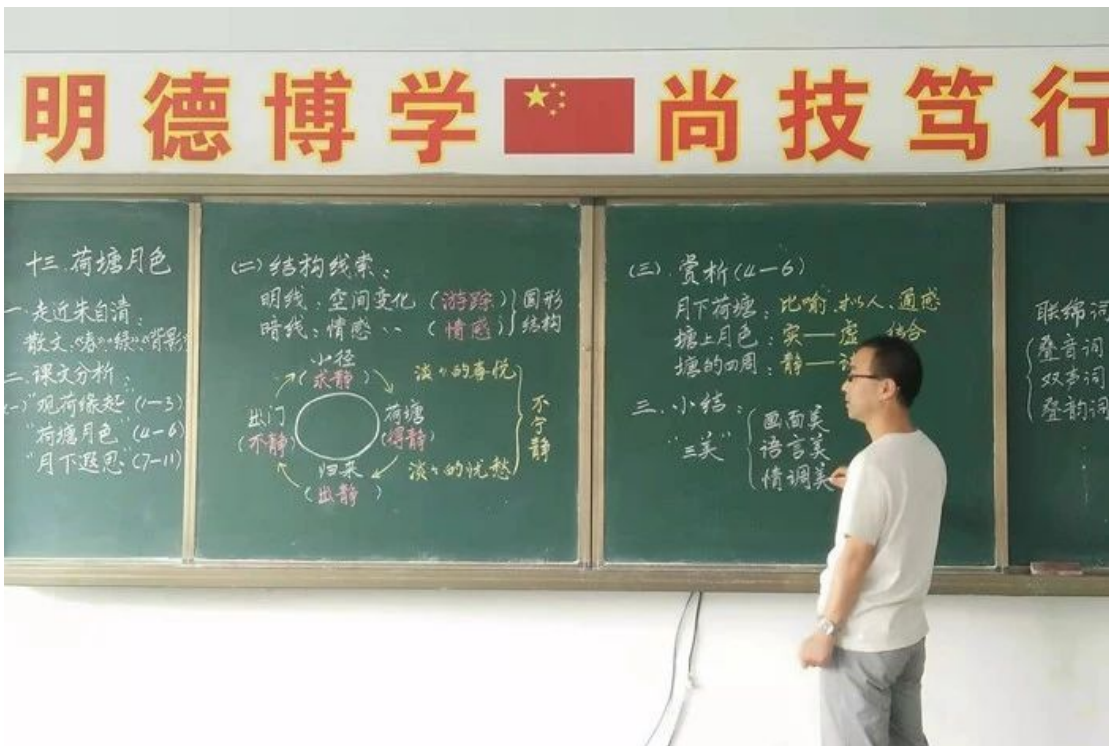 明德博学 尚技笃行
十三.荷塘月色
一.走近朱自清:
散文:《春》《绿》《背影》
二.课文分析:
(一)"观荷缘起"(1—3)
"荷塘月色"(4—6)
"月下遐思"(7—11)
(二)结构线索:
明线:空间变化(游踪)
暗线:情感〃(情感)
圆形
结构
小径
(求静)
荷塘
(得静)
归来
(出静)
出门
(不静)
淡々的喜悦
淡々的忧愁
不宁静
(三).赏析(4—6)
月下荷塘:比喻、拟人、通感
塘上月色:实—虚 结合
塘的四周:静—
三.小结:
"三美"
画面美
语言美
情调美
联绵词
叠音词
双声词
叠韵词